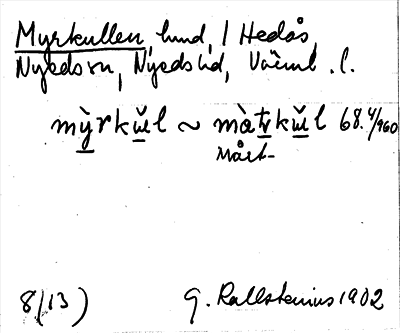 Myrkullen, lund, i Hedås,
Nyedssn, Nyedshd, Värml. l.
mỳrkŭl ~ màtrkŭl 68.4/960
Mårt-
8(13) G. Kallstenius 1902